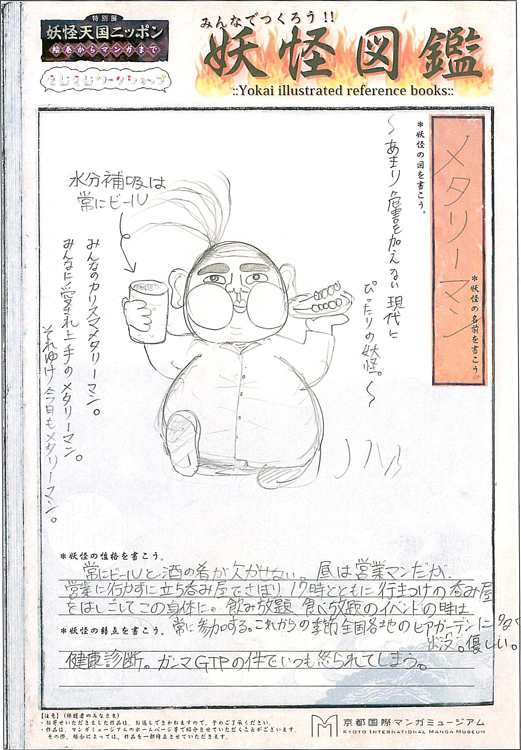 特別展
妖怪天国ニッポン
絵巻からマンガまで
みんなでつくろう!!
妖怪図鑑
::Yokai illustrated reference books::
*妖怪の名前を書こう。
メタリーマン
*妖怪の図を書こう。
〜あまり危害を加えない現代に
ぴったりの妖怪。〜
水分補吸は
常にビール
みんなのカリスマメタリーマン。
みんなに愛され上手のメタリーマン。
それゆけ今日もメタリーマン。
*妖怪の性格を書こう。
常にビールと酒の肴が欠かせない。昼は営業マンだが、
営業に行かずに立ち呑み屋でさぼり17時とともに行きつけの呑み屋
をはしごしてこの身体に。飲み放題 食べ放題のイベントの時は
常に参加する。これからの季節全国各地のビアガーデンに多く
出没。優しい。
*妖怪の弱点を書こう。
健康診断。ガンマGTPの件でいつも怒られてしまう。
【注意】(保護者のみなさま)
・お寄せいただきました作品は、お返しできかねますので、予めご了承ください。
・作品は、マンガミュージアムのホームページ等で紹介させていただくことがございます。
その際、場合によっては、作品を一部修正させていただきます。
京都国際マンガミュージアム
KYOTO INTERNATIONAL MANGA MUSEUM